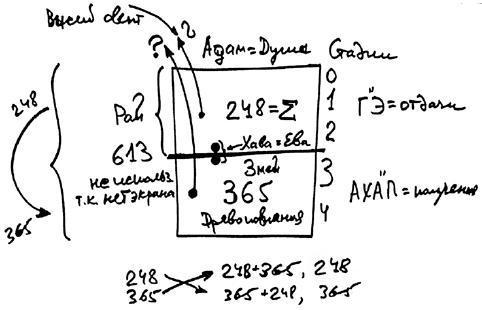 Высший свет
?
?
Адам=Душа
Стадии
0
1
2
3
4
248
365
Рай
613
не использ
т.к. нет экрана
248=Σ
Хава=Ева
Змей
365
Древо познания
Г"Э=отдачи
АХАП=получения
248 248+365, 248
365 365+248, 365